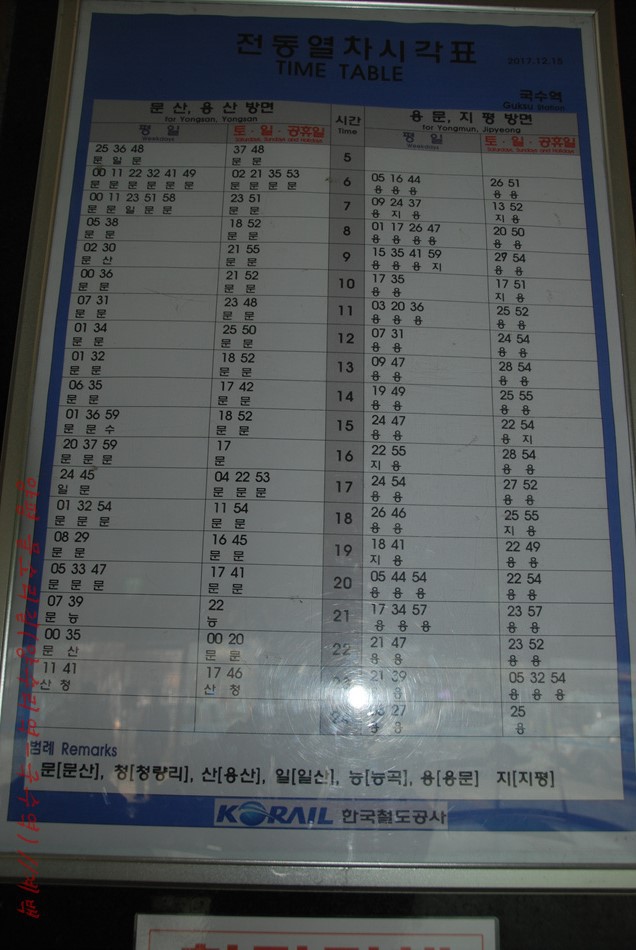 전동열차시각표
TIME TABLE
2017.12.15
국수역
Guksu Station
문산, 용산 방면 시간 용문, 지평 방면
for Yongsan, Yongsan Time for Yongmun, Jipyeong
평 일 토·일·공휴일 평 일 토·일·공휴일
Weekdays Saturdays, Sundays and Holidays Weekdays Saturdays, Sundays and Holidays
25 36 48 37 48 5
문 일 문 문 문
00 11 22 32 41 49 02 21 35 53 6 05 16 44 26 51
문 문 문 문 문 문 문 문 문 문 용 용 용 용 용
00 11 23 51 58 23 51 7 09 24 37 13 52
문 문 일 문 문 문 문 용 지 용 지 용
05 38 18 52 8 01 17 26 47 20 50
문 문 문 문 용 용 용 용 용 용
02 30 21 55 9 15 35 41 59 29 54
문 산 문 문 용 용 용 지 용 용
00 36 21 52 10 17 35 17 51
문 문 문 문 용 용 지 용
07 31 23 48 11 03 20 36 25 52
문 문 문 문 용 용 용 용 용
01 34 25 50 12 07 31 24 54
문 문 문 문 용 용 용 용
01 32 18 52 13 09 47 28 54
문 문 문 문 용 용 용 용
06 35 17 42 14 19 49 25 55
문 문 문 문 용 용 용 용
01 36 59 18 52 15 24 47 22 54
문 문 수 문 문 용 용 용 지
20 37 59 17 16 22 55 28 54
문 문 문 문 지 용 용 용
24 45 04 22 53 17 24 54 27 52
일 문 문 문 문 용 용 용 용
01 32 54 11 54 18 26 46 25 55
문 문 문 문 문 용 용 지 용
08 29 16 45 19 18 41 22 49
문 문 문 문 지 용 용 용
05 33 47 17 41 20 05 44 54 22 54
문 문 문 문 문 용 용 용 용 용
07 39 22 21 17 34 57 23 57
문 능 능 용 용 용 용 용
00 35 00 20 22 21 47 23 52
문 산 문 문 용 용 용 용
11 41 17 46 21 39 05 32 54
산 청 산 청 용 용 용 용 용
27 25
용 용 용
범례 Remarks
문[문산], 청[청량리], 산[용산], 일[일산], 능[능곡], 용[용문] 지[지평]
KORAIL 한국철도공사